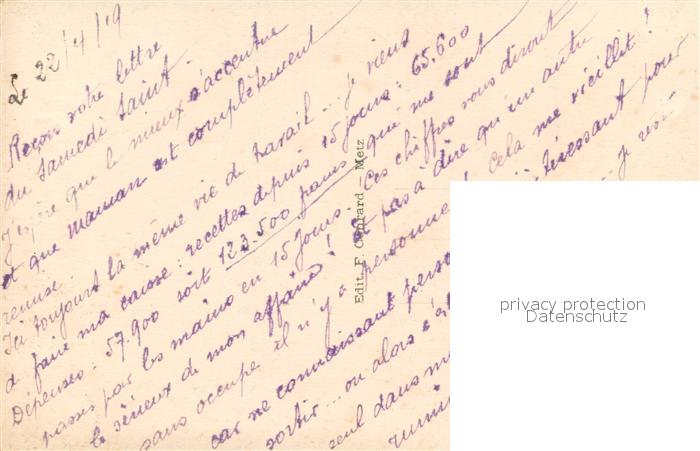 Le 22/4/19
Reçois votre lettre
du Samedi Saint.
J'espère que le mieux s'accentue
et que Maman est complètement
remise.
Ici toujours la même vie de travail... je viens
de faire ma caisse : recettes depuis 15 jours : 65.600
Dépenses : 57.900 soit 123.500 francs que me sont
passés par les mains en 15 jours ! Ces chiffres vous diront
le sérieux de mon affaire ! pas à dire qu'un autre
sans occupe il n'y a personne ! Cela me vieillit !
car ne connaissant intéressant pour
sortir... ou alors c'es je
seul dans
Edit. F. Conrard — Metz
privacy protection
Datenschutz